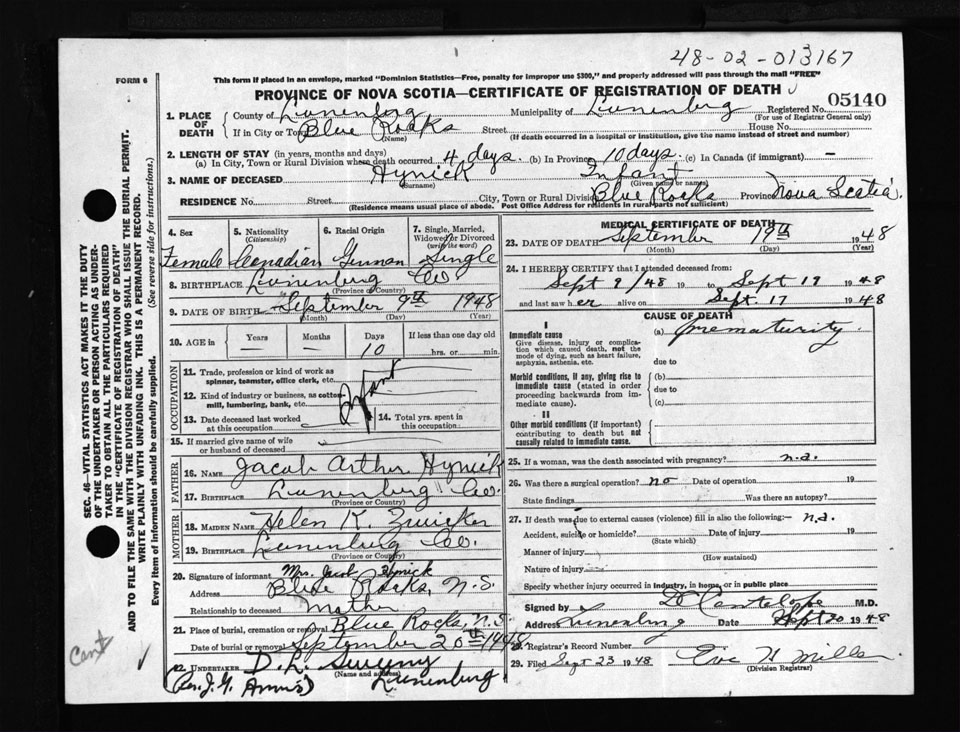 48-02-013167
FORM 6
This form if placed in an envelope, marked "Dominion Statistics—Free, penalty for improper use $300," and properly addressed will pass through the mail "FREE"
PROVINCE OF NOVA SCOTIA—CERTIFICATE OF REGISTRATION OF DEATH
05140
1. PLACE OF DEATH County of Lunenburg Municipality of Lunenburg Registered No. (For use of Registrar General only)
If in City or Town Blue Rocks (Name) Street House No.
(If death occurred in a hospital or institution, give the name instead of street and number)
2. LENGTH OF STAY (in years, months and days)
(a) In City, Town or Rural Division where death occurred 4 days. (b) In Province 10 days. (c) In Canada (if immigrant) —
3. NAME OF DECEASED Hynick (Surname) Infant (Given name or names)
RESIDENCE No. Street City, Town or Rural Division Blue Rocks Province Nova Scotia
(Residence means usual place of abode. Post Office Address for residents in rural parts not sufficient)
4. Sex 5. Nationality (Citizenship) 6. Racial Origin 7. Single, Married, Widowed or Divorced (write the word)
Female Canadian German Single
8. BIRTHPLACE Lunenburg Co (Province or Country)
9. DATE OF BIRTH September 9th 1948
(Month) (Day) (Year)
10. AGE in Years Months Days If less than one day old
10 hrs. or min.
OCCUPATION
11. Trade, profession or kind of work as spinner, teamster, office clerk, etc.
Infant
12. Kind of industry or business, as cotton mill, lumbering, bank, etc.
13. Date deceased last worked at this occupation 14. Total yrs. spent in this occupation
15. If married give name of wife or husband of deceased
FATHER
16. NAME Jacob Arthur Hynick
17. BIRTHPLACE Lunenburg Co.
(Province or Country)
MOTHER
18. MAIDEN NAME Helen K. Zwicker
19. BIRTHPLACE Lunenburg Co.
(Province or Country)
20. Signature of informant Mrs. Jacob Hynick
Address Blue Rocks, N.S.
Relationship to deceased Mother
21. Place of burial, cremation or removal Blue Rocks, N.S.
Date of burial or removal September 20th 1948
22. UNDERTAKER D. L. Sweeny
(Name and address)
Lunenburg
MEDICAL CERTIFICATE OF DEATH
23. DATE OF DEATH September 19th 1948
(Month) (Day) (Year)
24. I HEREBY CERTIFY that I attended deceased from:
Sept 9/48 19 to Sept 17 1948
and last saw her alive on Sept. 17 1948
CAUSE OF DEATH
I
Immediate cause (a) prematurity
Give disease, injury or complication which caused death, not the mode of dying, such as heart failure, asphyxia, asthenia, etc.
due to
Morbid conditions, if any, giving rise to immediate cause (stated in order proceeding backwards from immediate cause).
(b)
due to
(c)
II
Other morbid conditions (if important) contributing to death but not causally related to immediate cause.
25. If a woman, was the death associated with pregnancy? n.a.
26. Was there a surgical operation? no Date of operation 19
State findings Was there an autopsy?
27. If death was due to external causes (violence) fill in also the following:- n.a.
Accident, suicide or homicide? Date of injury 19
(State which)
Manner of injury (How sustained)
Nature of injury
Specify whether injury occurred in industry, in home, or in public place
Signed by M.D.
Address Lunenburg Date Sept 20 1948
28. Registrar's Record No.
29. Filed Sept 23 1948
(Division Registrar)
SEC. 46—VITAL STATISTICS ACT MAKES IT THE DUTY
OF THE UNDERTAKER OR PERSON ACTING AS UNDERTAKER TO OBTAIN ALL THE PARTICULARS REQUIRED
IN THE "CERTIFICATE OF REGISTRATION OF DEATH"
AND TO FILE THE SAME WITH THE DIVISION REGISTRAR WHO SHALL ISSUE THE BURIAL PERMIT.
WRITE PLAINLY WITH UNFADING INK. THIS IS A PERMANENT RECORD.
Every item of information should be carefully supplied. (See reverse side for instructions.)